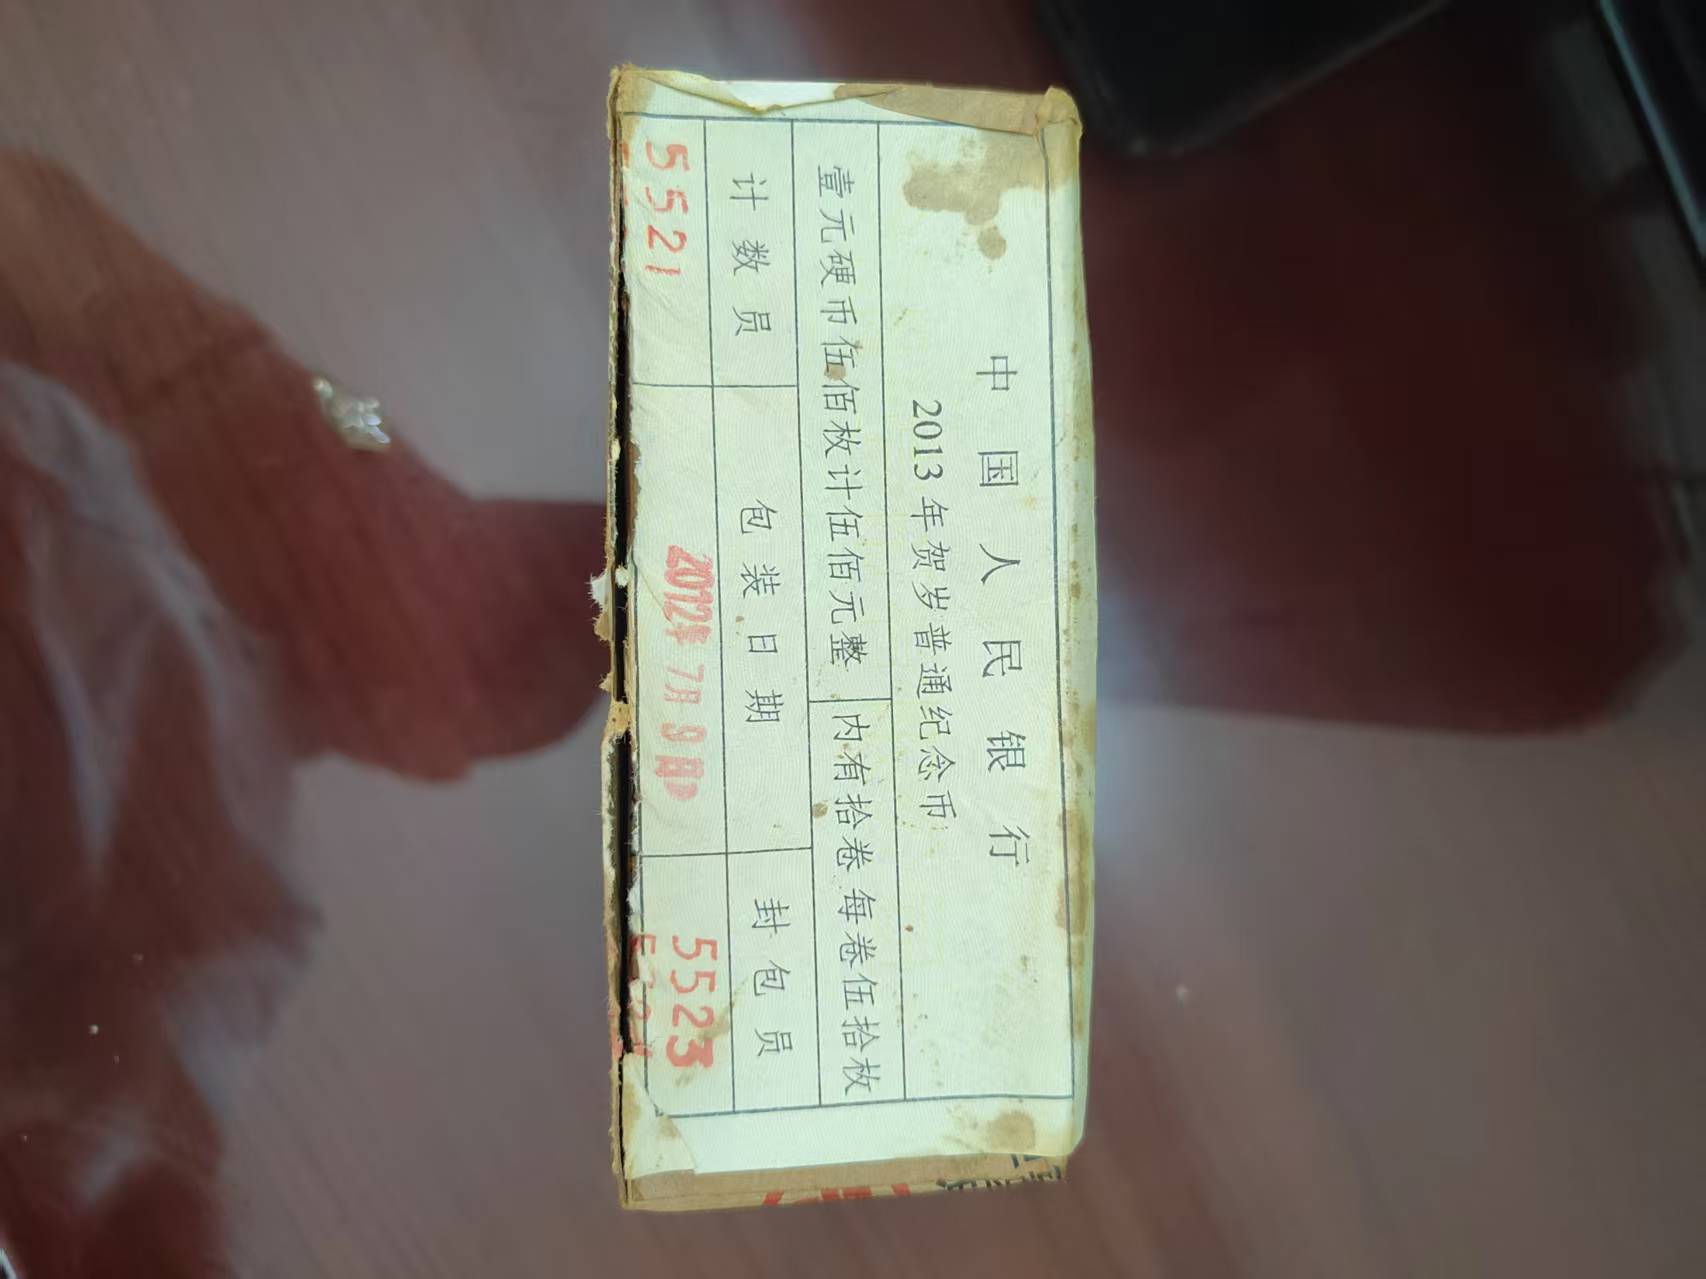 中国人民银行
2013年贺岁普通纪念币
壹元硬币伍佰枚计伍佰元整 内有拾卷每卷伍拾枚
计数员 包装日期 封包员
5521 2012年7月9日 5523